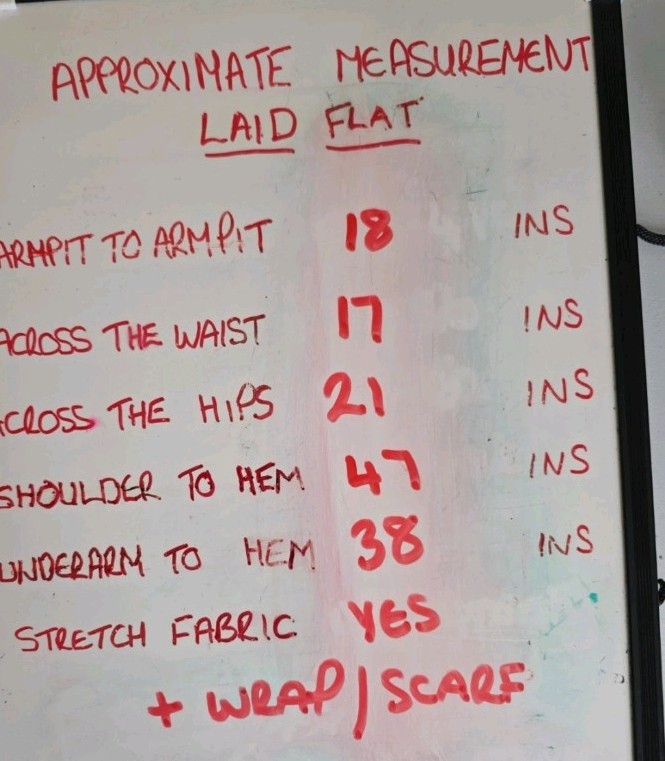 APPROXIMATE MEASUREMENT
LAID FLAT
ARMPIT TO ARMPIT 18 INS
ACROSS THE WAIST 17 INS
ACROSS THE HIPS 21 INS
SHOULDER TO HEM 47 INS
UNDERARM TO HEM 38 INS
STRETCH FABRIC YES
+ WRAP/SCARF